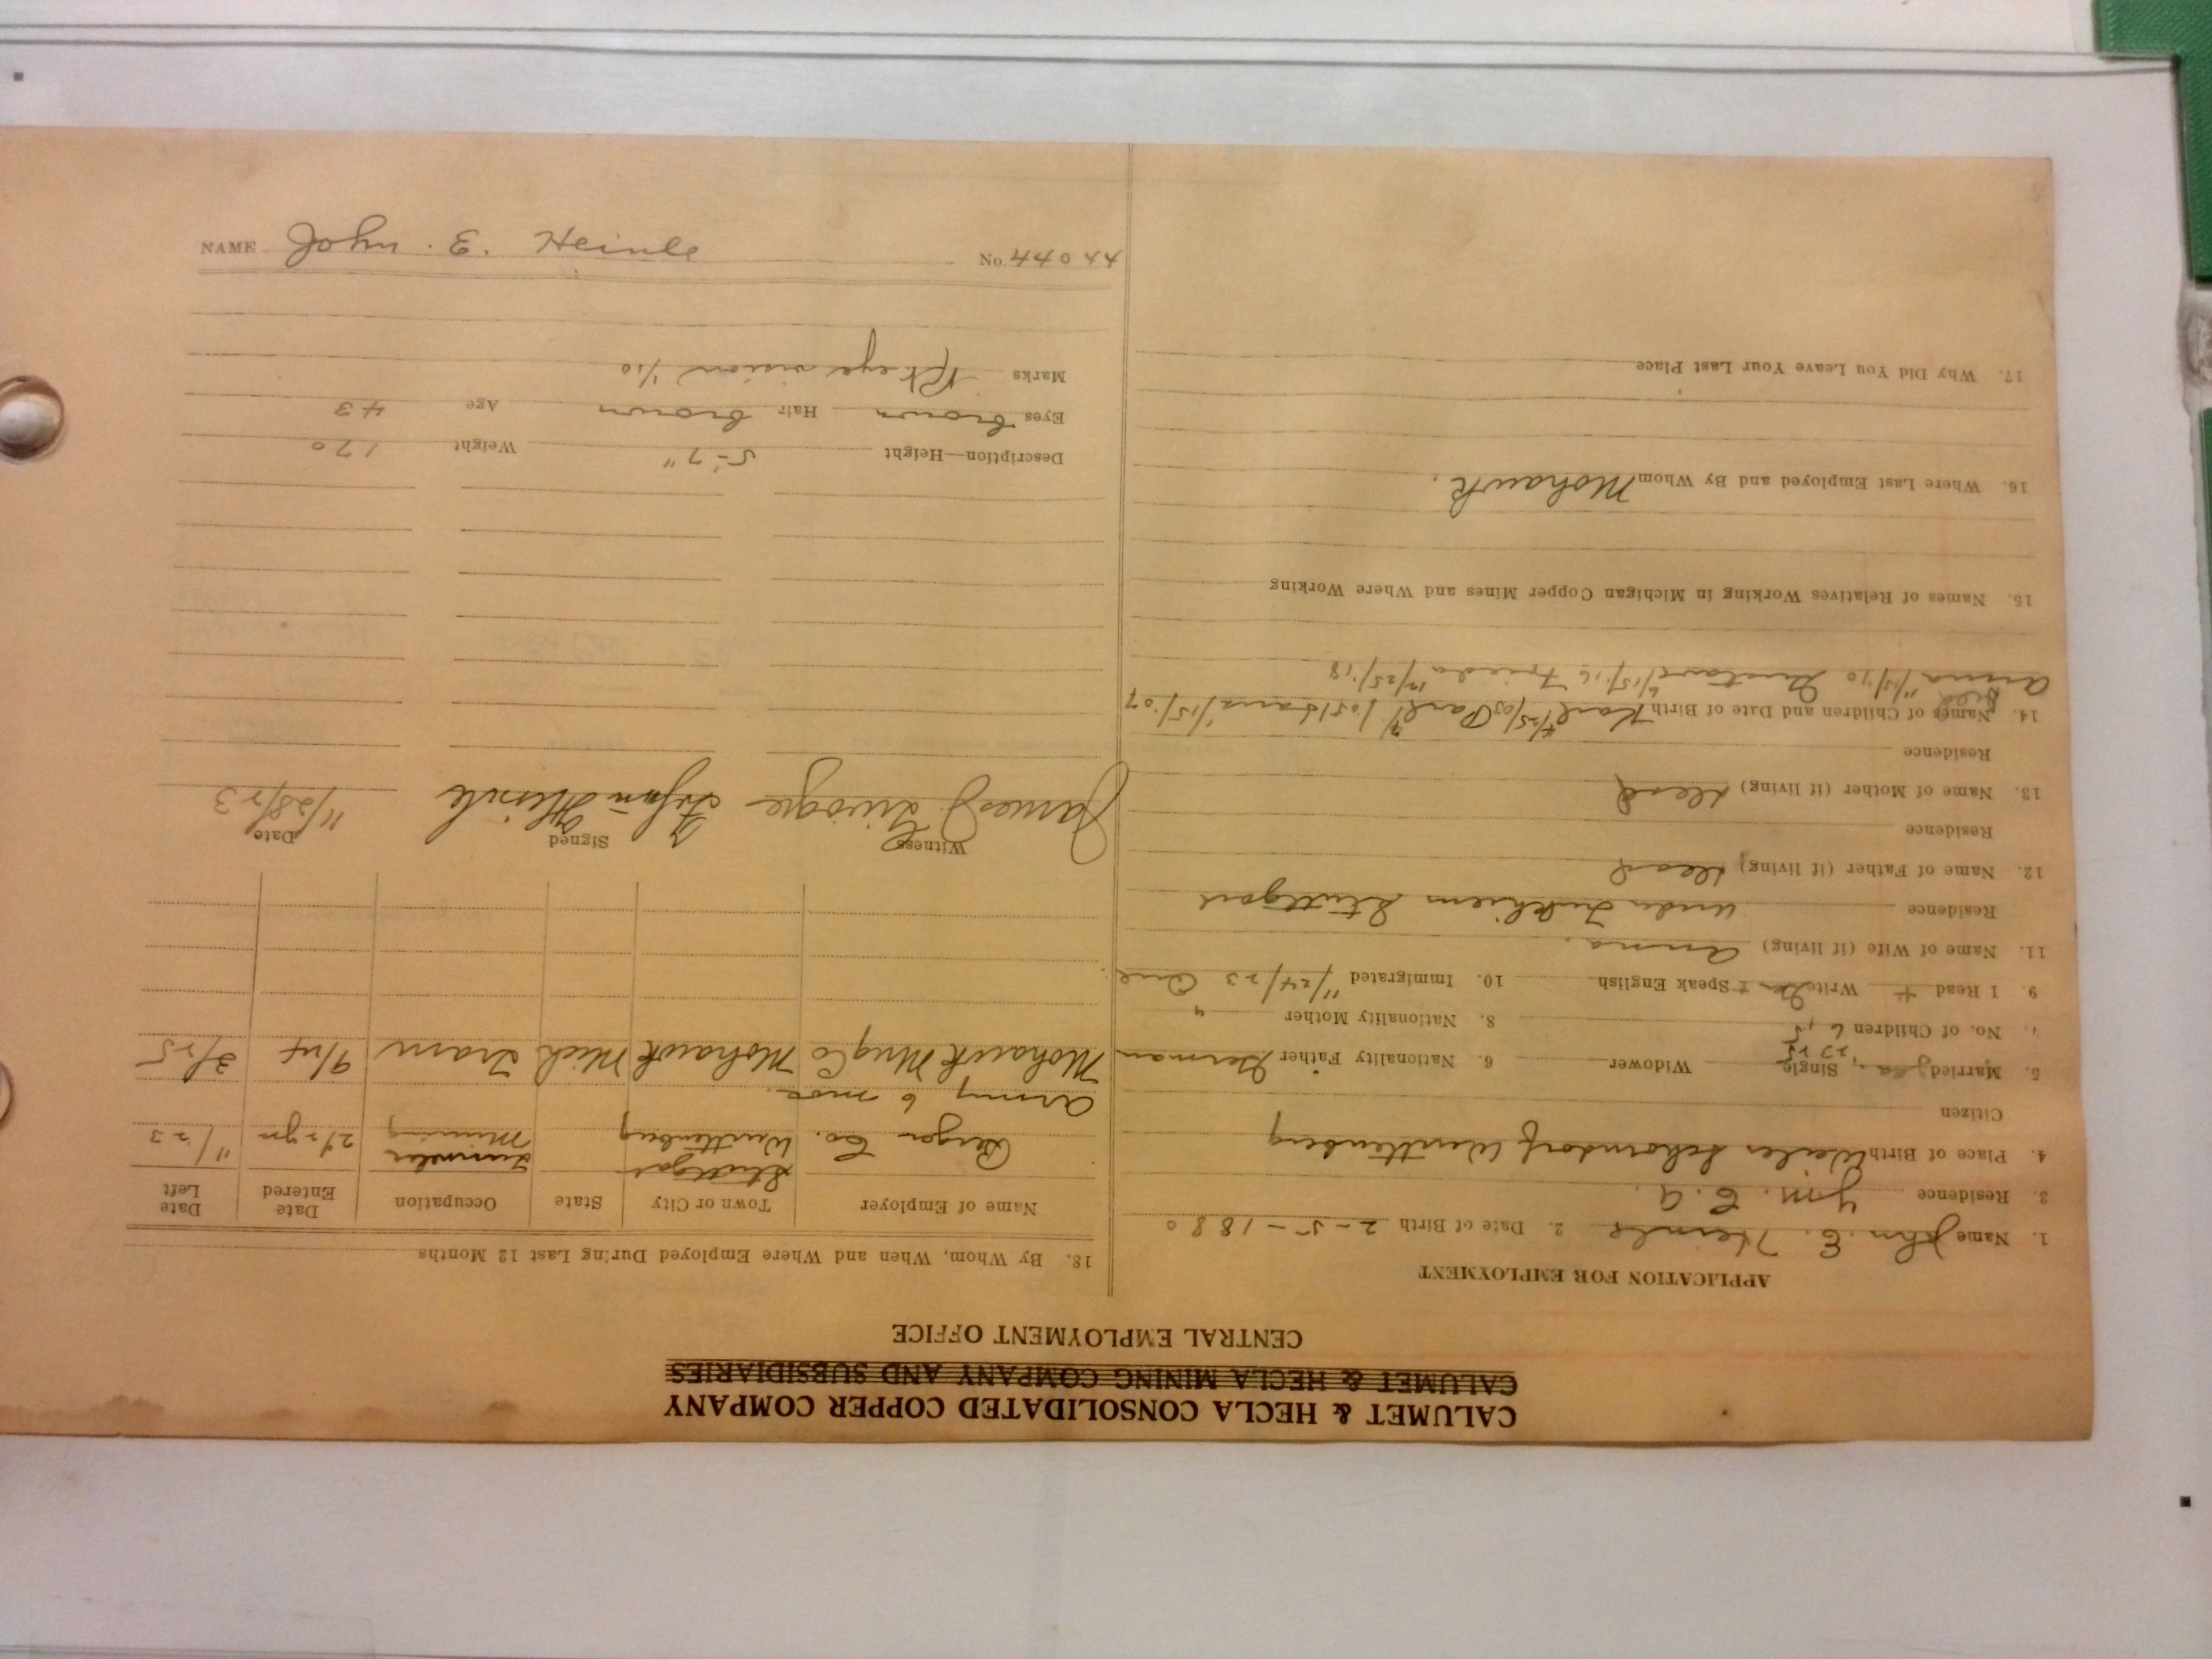 CALUMET & HECLA CONSOLIDATED COPPER COMPANY
CALUMET & HECLA MINING COMPANY AND SUBSIDIARIES
CENTRAL EMPLOYMENT OFFICE
APPLICATION FOR EMPLOYMENT
1. Name John E. Heinle 2. Date of Birth 2-5-1880
3. Residence
4. Place of Birth Weiler Schorndorf Wurttenberg
Citizen
5. Married Single Widower 6. Nationality Father German
7. No. of Children 6 5 8. Nationality Mother "
9. I Read + Write Speak English 10. Immigrated 11/24/23
11. Name of Wife (if living) Anna.
Residence Stuttgart
12. Name of Father (if living) dead
Residence
13. Name of Mother (if living) dead
Residence
14. Names of Children and Date of Birth Karl
Anna Frieda
15. Names of Relatives Working in Michigan Copper Mines and Where Working
16. Where Last Employed and By Whom Mohawk.
17. Why Did You Leave Your Last Place
18. By Whom, When and Where Employed During Last 12 Months
Name of Employer Town or City State Occupation Date Entered Date Left
Berger Co. Stuttgart Wurttenberg Mining 2 1/2 yr 11/23
Army 6 mos.
Mohawk Mng Co Mohawk Mich Tram 9/24 3/25
Witness Signed Date
James Heinle 11/28/23
Description—Height 5'-7" Weight 170
Eyes brown Hair brown Age 43
Marks Rt eye vision 1/10
NAME John. E. Heinle No.